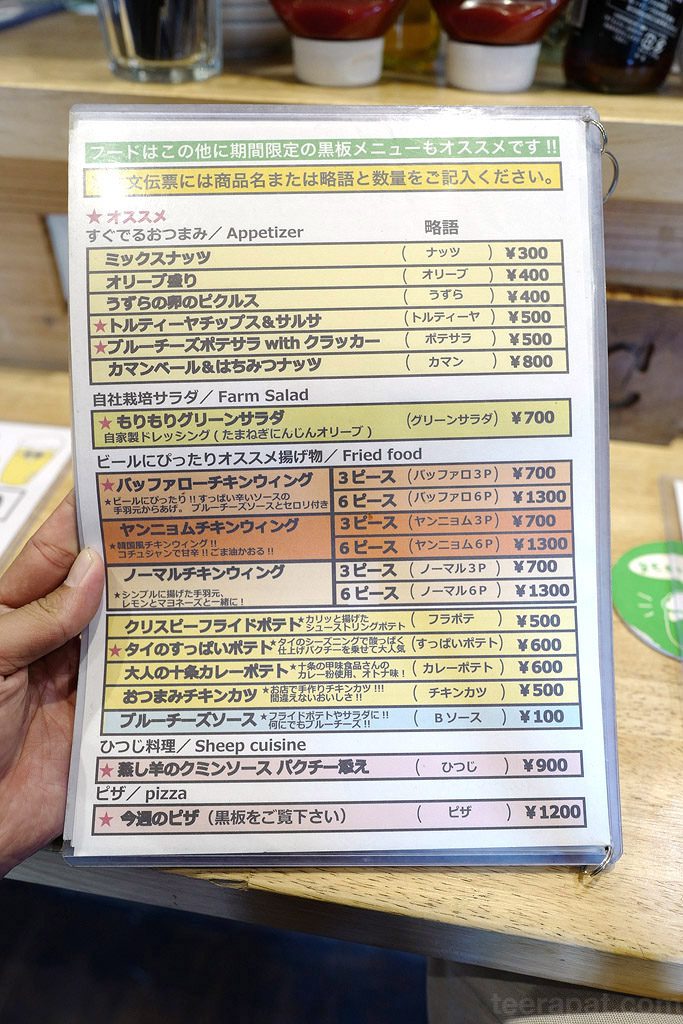 フードはこの他に期間限定の黒板メニューもオススメです!!
文伝票には商品名または略語と数量をご記入ください。
★オススメ
すぐでるおつまみ／Appetizer 略語
ミックスナッツ ( ナッツ ) ¥300
オリーブ盛り ( オリーブ ) ¥400
うずらの卵のピクルス ( うずら ) ¥400
★トルティーヤチップス&サルサ (トルティーヤ) ¥500
★ブルーチーズポテサラ with クラッカー ( ポテサラ ) ¥500
カマンベール&はちみつナッツ ( カマン ) ¥800
自社栽培サラダ／Farm Salad
★もりもりグリーンサラダ (グリーンサラダ) ¥700
自家製ドレッシング(たまねぎにんじんオリーブ)
ビールにぴったりオススメ揚げ物／Fried food
★バッファローチキンウィング 3ピース (バッファロ3P) ¥700
★ビールにぴったり!!すっぱい辛いソースの
手羽元からあげ。ブルーチーズソースとセロリ付き
6ピース (バッファロ6P) ¥1300
ヤンニョムチキンウィング 3ピース (ヤンニョム3P) ¥700
★韓国風チキンウィング!!
コチュジャンで甘辛!!ごま油かおる!!
6ピース (ヤンニョム6P) ¥1300
ノーマルチキンウィング 3ピース (ノーマル3P) ¥700
★シンプルに揚げた手羽元、
レモンとマヨネーズと一緒に!
6ピース (ノーマル6P) ¥1300
クリスピーフライドポテト★カリッと揚げた
シューストリングポテト ( フラポテ ) ¥500
★タイのすっぱいポテト★タイのシーズニングで酸っぱく
仕上げパクチーを乗せて大人気 (すっぱいポテト) ¥600
大人の十条カレーポテト★十条の甲味食品さんの
カレー粉使用、オトナ味! (カレーポテト) ¥600
おつまみチキンカツ★お店で手作りチキンカツ!!!
間違えないおいしさ!! ( チキンカツ ) ¥500
ブルーチーズソース★フライドポテトやサラダに!!
何にでもブルーチーズ!! ( Bソース ) ¥100
ひつじ料理／Sheep cuisine
★蒸し羊のクミンソース パクチー添え ( ひつじ ) ¥900
ピザ／pizza
★今週のピザ(黒板をご覧下さい) ( ピザ ) ¥1200
teerapat.com